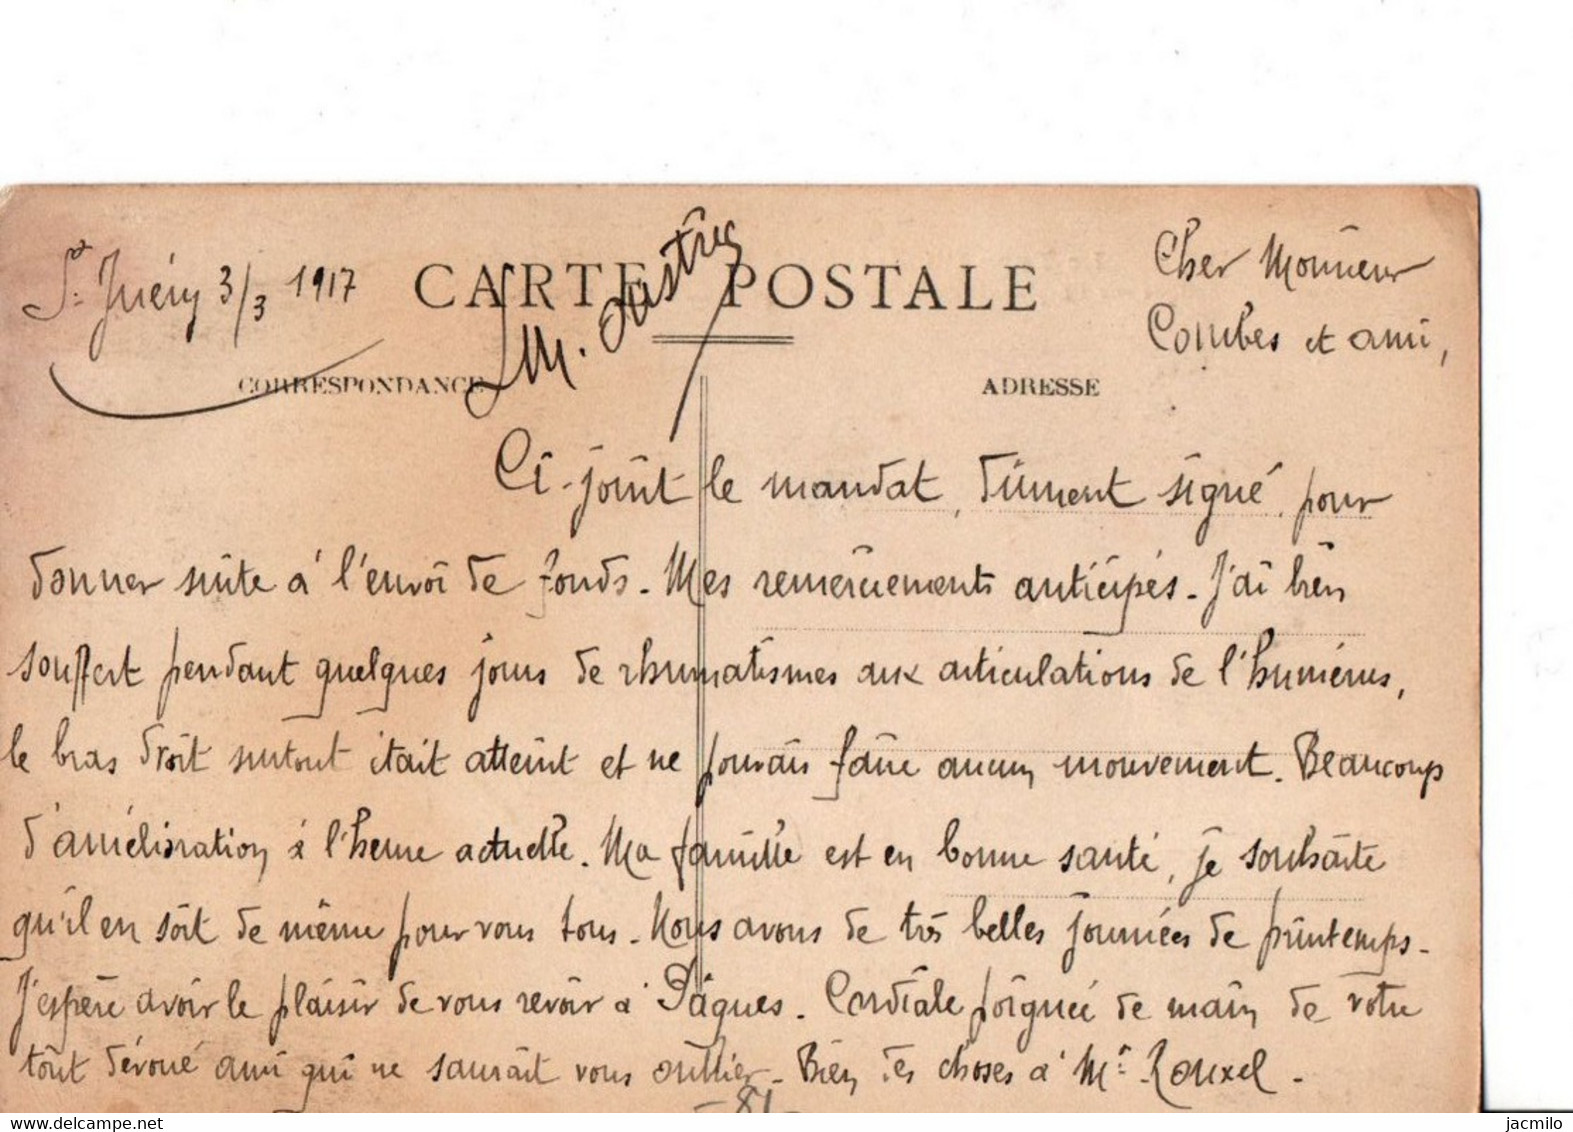 St Juéry 3/3 1917
CARTE POSTALE
Cher Monsieur
Combes et ami,
CORRESPONDANCE
ADRESSE
Ci-joint le mandat, dûment signé, pour
donner suite à l'envoi de fonds. Mes remerciements anticipés. J'ai bien
souffert pendant quelques jours de rhumatismes aux articulations de l'humérus,
le bras droit surtout était atteint et ne pouvais faire aucun mouvement. Beaucoup
d'amélioration à l'heure actuelle. Ma famille est en bonne santé, je souhaite
qu'il en soit de même pour vous tous. Nous avons de très belles journées de printemps.
J'espère avoir le plaisir de vous revoir à Pâques. Cordiale poignée de main de votre
tout dévoué ami qui ne saurait vous oublier. Bien des choses à Mr Rouxel.
M.
-81-
jacmilo